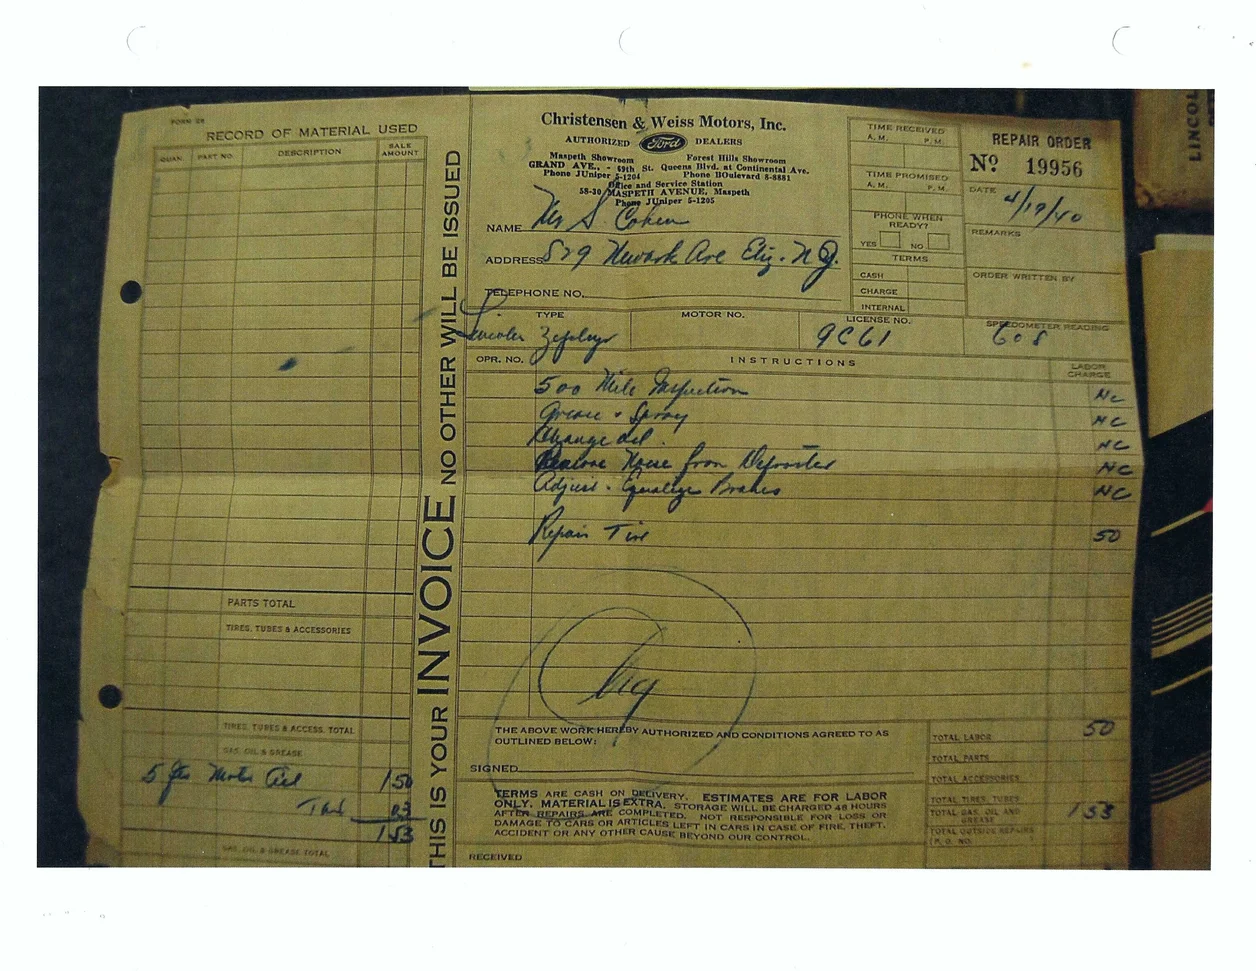 FORM 24
RECORD OF MATERIAL USED
QUAN. PART NO. DESCRIPTION SALE AMOUNT
PARTS TOTAL
TIRES, TUBES & ACCESSORIES
TIRES, TUBES & ACCESS. TOTAL
GAS, OIL & GREASE
5 Qts Motor Oil 1 50
Tax 03
1 53
GAS, OIL & GREASE TOTAL
THIS IS YOUR INVOICE NO OTHER WILL BE ISSUED
Christensen & Weiss Motors, Inc.
AUTHORIZED Ford DEALERS
Maspeth Showroom Forest Hills Showroom
GRAND AVE., - 69th St. Queens Blvd. at Continental Ave.
Phone JUniper 5-1204 Phone BOulevard 8-8881
Office and Service Station
58-30 MASPETH AVENUE, Maspeth
Phone JUniper 5-1205
NAME Mr S. Cohen
ADDRESS 829 Newark Ave Eliz. N.J.
TELEPHONE NO.
TIME RECEIVED
A. M. P. M.
TIME PROMISED
A. M. P. M.
PHONE WHEN READY?
YES NO
TERMS
CASH
CHARGE
INTERNAL
REPAIR ORDER
No. 19956
DATE 4/19/40
REMARKS
ORDER WRITTEN BY
TYPE MOTOR NO. LICENSE NO. SPEEDOMETER READING
Lincoln Zephyr 9C61 608
OPR. NO. INSTRUCTIONS LABOR CHARGE
500 Mile Inspection NC
Grease & Spray NC
Change oil. NC
Remove Noise from Defroster NC
Adjust & Equalize Brakes NC
Repair Tire 50
THE ABOVE WORK HEREBY AUTHORIZED AND CONDITIONS AGREED TO AS
OUTLINED BELOW:
SIGNED
TERMS ARE CASH ON DELIVERY. ESTIMATES ARE FOR LABOR
ONLY. MATERIAL IS EXTRA, STORAGE WILL BE CHARGED 48 HOURS
AFTER REPAIRS ARE COMPLETED. NOT RESPONSIBLE FOR LOSS OR
DAMAGE TO CARS OR ARTICLES LEFT IN CARS IN CASE OF FIRE, THEFT,
ACCIDENT OR ANY OTHER CAUSE BEYOND OUR CONTROL.
RECEIVED
TOTAL LABOR 50
TOTAL PARTS
TOTAL ACCESSORIES
TOTAL TIRES, TUBES
TOTAL GAS, OIL AND GREASE 1 53
TOTAL OUTSIDE REPAIRS
(P. O. NO.
LINCOL